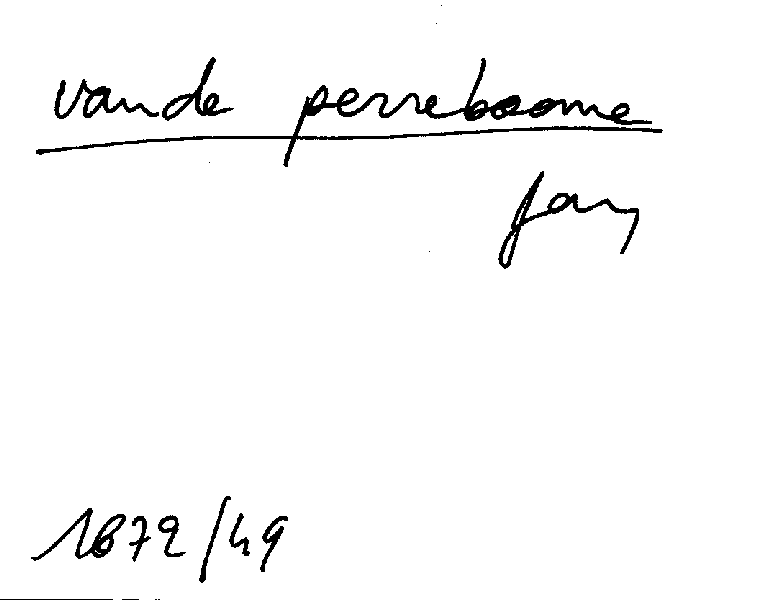 vande perreboome
Jan
1872/49